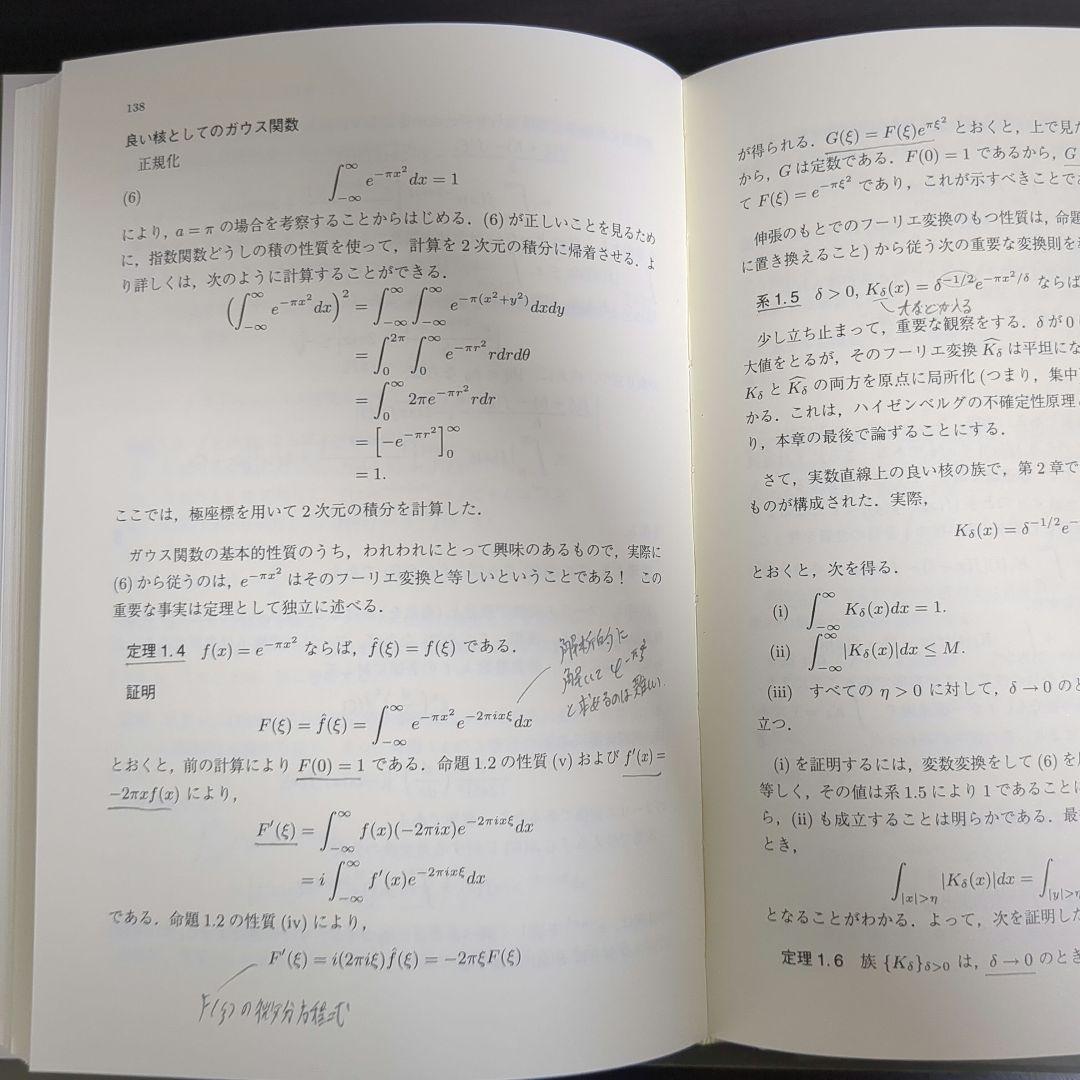 138
良い核としてのガウス関数
正規化
(6) ∫_{-∞}^{∞} e^{-πx²}dx = 1
により，a = π の場合を考察することからはじめる．(6) が正しいことを見るため
に，指数関数どうしの積の性質を使って，計算を 2 次元の積分に帰着させる．よ
り詳しくは，次のように計算することができる．
(∫_{-∞}^{∞} e^{-πx²}dx)² = ∫_{-∞}^{∞}∫_{-∞}^{∞} e^{-π(x²+y²)}dxdy
= ∫_0^{2π}∫_0^{∞} e^{-πr²}rdrdθ
= ∫_0^{∞} 2πe^{-πr²}rdr
= [-e^{-πr²}]_0^{∞}
= 1.
ここでは，極座標を用いて 2 次元の積分を計算した．
ガウス関数の基本的性質のうち，われわれにとって興味のあるもので，実際に
(6) から従うのは，e^{-πx²} はそのフーリエ変換と等しいということである！ この
重要な事実は定理として独立に述べる．
定理 1.4 f(x) = e^{-πx²} ならば，f̂(ξ) = f(ξ) である．
解析的に
解いて e^{-πξ²}
と求めるのは難しい．
証明
F(ξ) = f̂(ξ) = ∫_{-∞}^{∞} e^{-πx²}e^{-2πixξ}dx
とおくと，前の計算により F(0) = 1 である．命題 1.2 の性質 (v) および f′(x) =
-2πxf(x) により，
F′(ξ) = ∫_{-∞}^{∞} f(x)(-2πix)e^{-2πixξ}dx
= i∫_{-∞}^{∞} f′(x)e^{-2πixξ}dx
である．命題 1.2 の性質 (iv) により，
F′(ξ) = i(2πiξ)f̂(ξ) = -2πξF(ξ)
F(ξ)の微分方程式
が得られる．G(ξ) = F(ξ)e^{πξ²} とおくと，上で見た
から，G は定数である．F(0) = 1 であるから，G
て F(ξ) = e^{-πξ²} であり，これが示すべきことであ
伸張のもとでのフーリエ変換のもつ性質は，命題
に置き換えること) から従う次の重要な変換則を
系 1.5 δ > 0, K_δ(x) = δ^{-1/2}e^{-πx²/δ} ならば
少し立ち止まって，重要な観察をする．δ が 0
大値をとるが，そのフーリエ変換 K̂_δ は平坦にな
K_δ と K̂_δ の両方を原点に局所化 (つまり，集中
かる．これは，ハイゼンベルグの不確定性原理
り，本章の最後で論ずることにする．
さて，実数直線上の良い核の族で，第 2 章で
ものが構成された．実際，
K_δ(x) = δ^{-1/2}e^-
とおくと，次を得る．
(i) ∫_{-∞}^{∞} K_δ(x)dx = 1.
(ii) ∫_{-∞}^{∞} |K_δ(x)|dx ≤ M.
(iii) すべての η > 0 に対して，δ → 0 のと
立つ．
(i) を証明するには，変数変換をして (6) を
等しく，その値は系 1.5 により 1 であることに
ら，(ii) も成立することは明らかである．最
とき，
∫_{|x|>η} |K_δ(x)|dx = ∫_{|y|>η
となることがわかる．よって，次を証明した
定理 1.6 族 {K_δ}_{δ>0} は，δ → 0 のとき